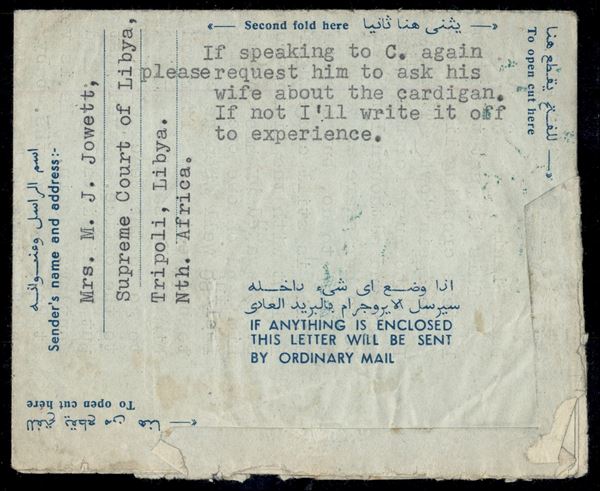 Second fold here يثنى هنا ثانيا
If speaking to C. again
please request him to ask his
wife about the cardigan.
If not I'll write it off
to experience.
To open cut here
للفتح يقطع هنا
اسم الراسل وعنوانه
Sender's name and address:-
Mrs. M. J. Jowett,
Supreme Court of Libya,
Tripoli, Libya.
Nth. Africa.
اذا وضع اى شىء داخله
سيرسل الايروجرام بالبريد العادى
IF ANYTHING IS ENCLOSED
THIS LETTER WILL BE SENT
BY ORDINARY MAIL
To open cut here
للفتح يقطع من هنا